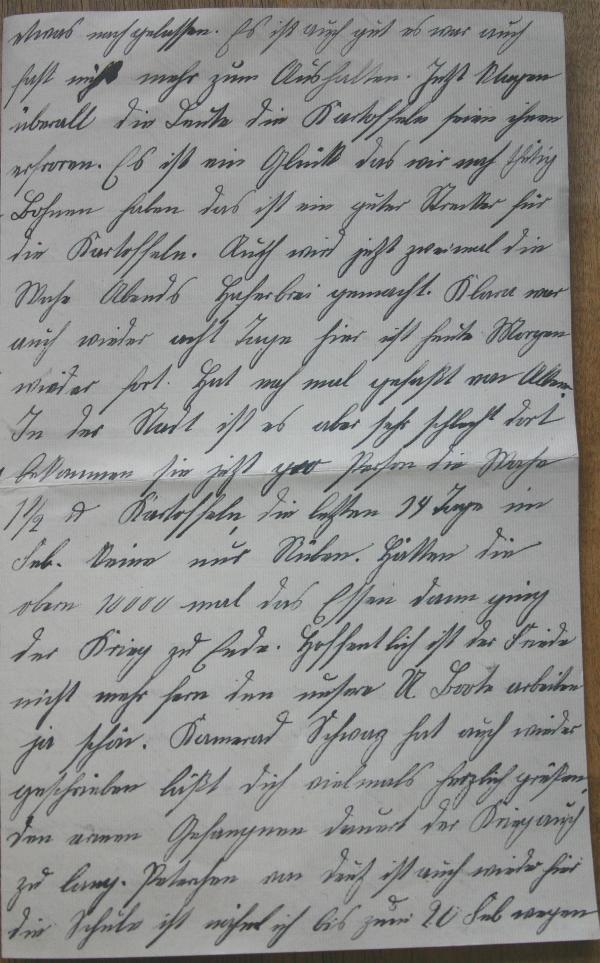 etwas nachgelassen. Es ist auch gut es war auch
fast nicht mehr zum Aushalten. Jetzt klagen
überall die Leute die Kartoffeln seien ihnen
erfroren. Es ist ein Glück das wir noch
Bohnen haben das ist ein guter Strecker für
die Kartoffeln. Auch wird jetzt zweimal die
Woche Abends Haferbrei gemacht. Klara war
auch wieder acht Tage hier ist heute Morgen
wieder fort. Hat noch mal gefaßt von Allem.
In der Stadt ist es aber sehr schlecht dort
bekommen sie jetzt pro Person die Woche
1 1/2 ℔ Kartoffeln, die letzten 14 Tage im
Feb. keine nur Rüben. Hätten die
obern 10000 mal das Essen dann ging
der Krieg zu Ende. Hoffentlich ist der Friede
nicht mehr fern den unsere U Boote arbeiten
ja schön. Kamerad Schwarz hat auch wieder
geschrieben läßt dich vielmals herzlich grüßen,
den armen Gefangnen dauert der Krieg auch
zu lang. Petersen von ist auch wieder hier
die Schule ist nähmlich bis zum 20 Feb wegen